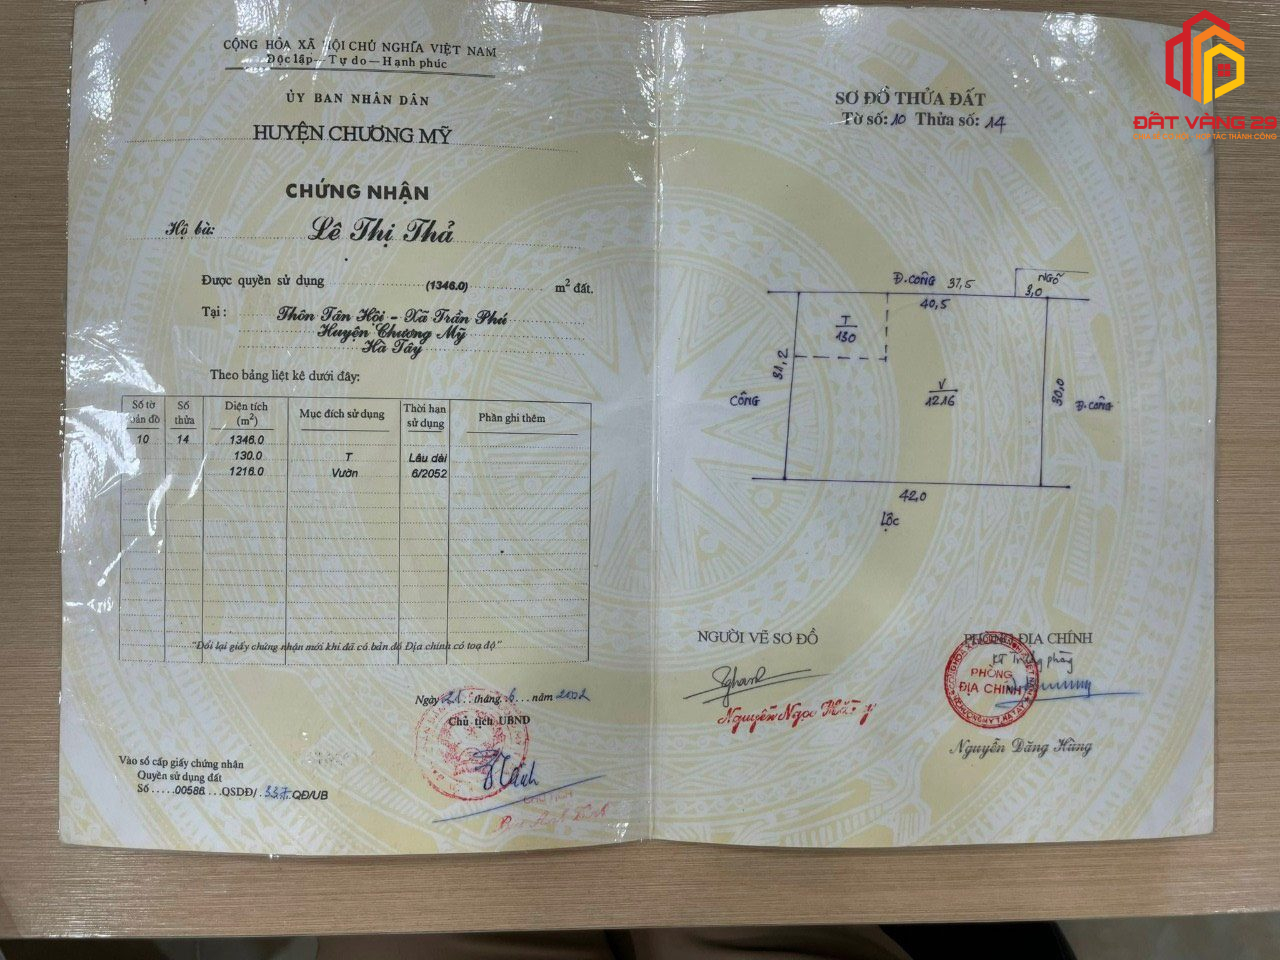 CỘNG HÒA XÃ HỘI CHỦ NGHĨA VIỆT NAM
Độc lập — Tự do — Hạnh phúc
ỦY BAN NHÂN DÂN
HUYỆN CHƯƠNG MỸ
CHỨNG NHẬN
Hộ bà: Lê Thị Thả
Được quyền sử dụng (1346.0) m² đất.
Tại: Thôn Tân Hội - Xã Trần Phú
Huyện Chương Mỹ
Hà Tây
Theo bảng liệt kê dưới đây:
Số tờ bản đồ Số thửa Diện tích (m²) Mục đích sử dụng Thời hạn sử dụng Phần ghi thêm
10 14 1346.0
130.0 T Lâu dài
1216.0 Vườn 6/2052
"Đổi lại giấy chứng nhận mới khi đã có bản đồ Địa chính có toạ độ"
Ngày 21 tháng 6 năm 2002
Chủ tịch UBND
CHỦ TỊCH
Vào sổ cấp giấy chứng nhận
Quyền sử dụng đất
Số 00586 QSDĐ/ 337 QĐ/UB
SƠ ĐỒ THỬA ĐẤT
Tờ số: 10 Thửa số: 14
Đ.CÔNG 37,5
NGÕ
3,0
40,5
T
130
31,2
V
1216
30,0
CÔNG
Đ.CÔNG
42,0
LỘC
NGƯỜI VẼ SƠ ĐỒ
Nguyễn Ngọc
PHÒNG ĐỊA CHÍNH
KT Trưởng phòng
PHÒNG
ĐỊA CHÍNH
Nguyễn Đăng Hùng
ĐẤT VÀNG 29